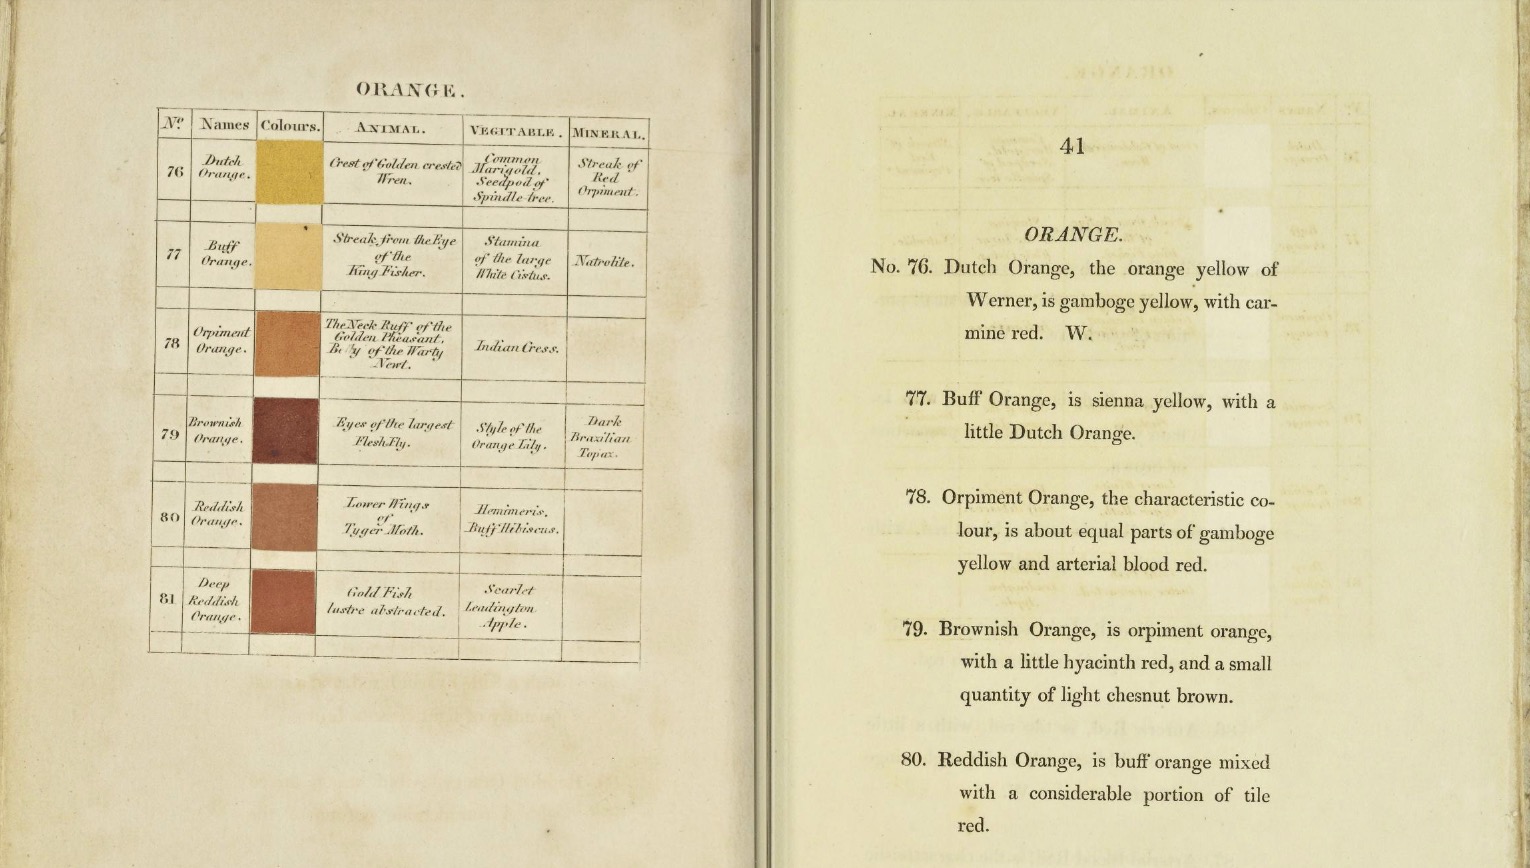 ORANGE.
No. Names Colours. ANIMAL. VEGITABLE. MINERAL.
76
Dutch
Orange.
Crest of Golden crested
Wren.
Common
Marigold,
Seedpod of
Spindle-tree.
Streak of
Red
Orpiment.
77
Buff
Orange.
Streak from the Eye
of the
King Fisher.
Stamina
of the large
White Cistus.
Natrolite.
78
Orpiment
Orange.
The Neck Ruff of the
Golden Pheasant,
of the Warty
Newt.
Indian Cress.
79
Brownish
Orange.
Eyes of the largest
Flesh Fly.
Style of the
Orange Lily.
Dark
Brazilian
Topaz.
80
Reddish
Orange.
Lower Wings
of
Tyger Moth.
Hemimeris.
Buff Hibiscus.
81
Deep
Reddish
Orange.
Gold Fish
lustre abstracted.
Scarlet
Leadington
Apple.
41
ORANGE.
No. 76. Dutch Orange, the orange yellow of
Werner, is gamboge yellow, with car-
mine red. W.
77. Buff Orange, is sienna yellow, with a
little Dutch Orange.
78. Orpiment Orange, the characteristic co-
lour, is about equal parts of gamboge
yellow and arterial blood red.
79. Brownish Orange, is orpiment orange,
with a little hyacinth red, and a small
quantity of light chesnut brown.
80. Reddish Orange, is buff orange mixed
with a considerable portion of tile
red.